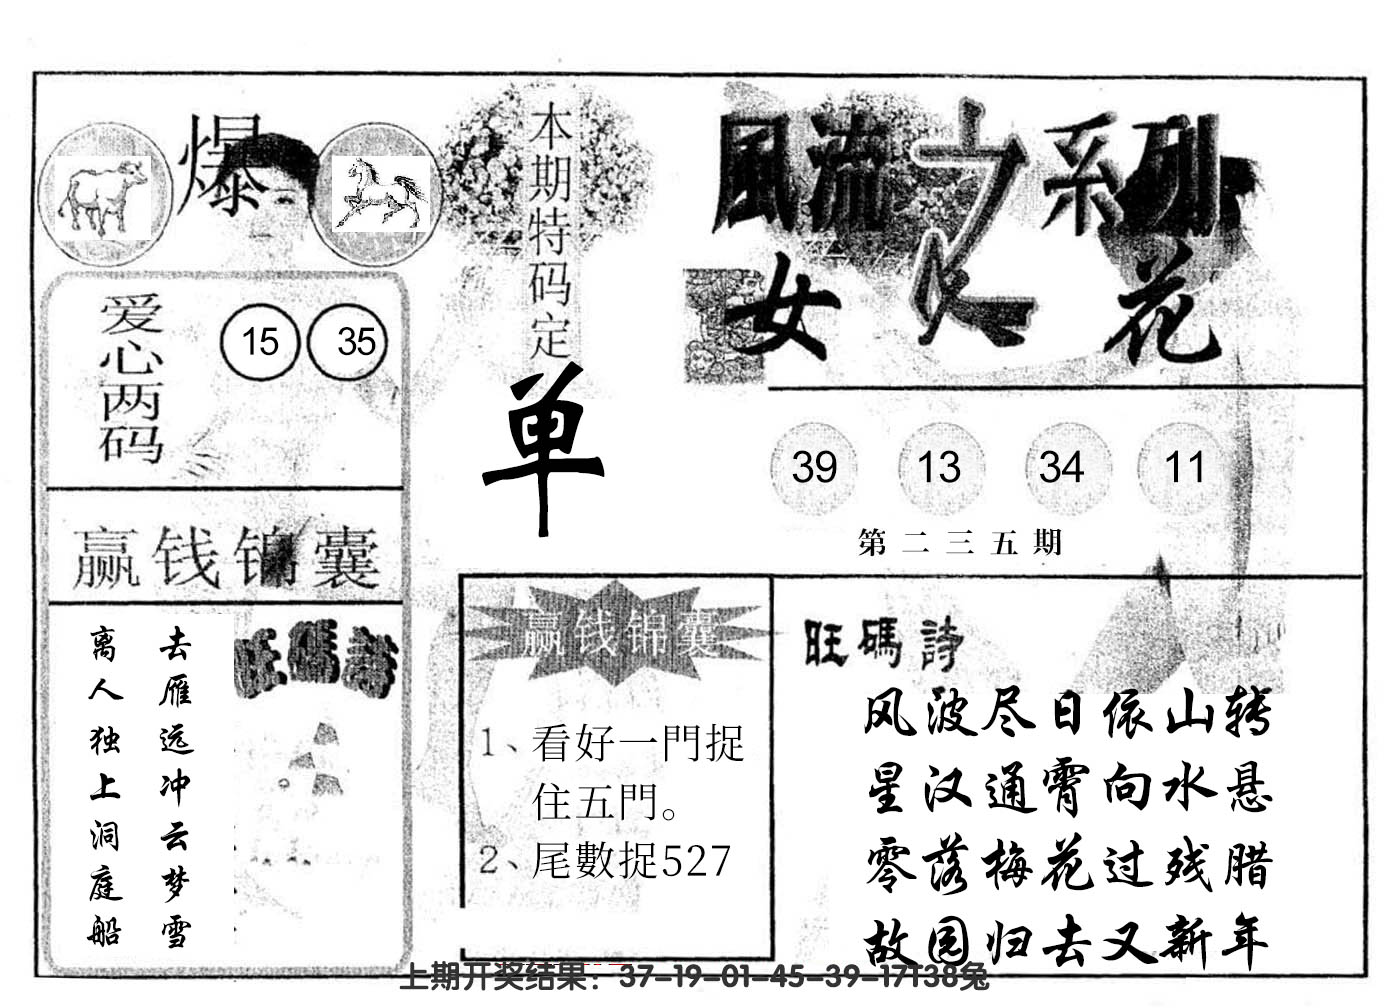 爆
本期特码定
单
風流之系列
女人花
爱心两码
15 35
39 13 34 11
第二三五期
赢钱锦囊
去雁远冲云梦雪
离人独上洞庭船
旺碼詩
赢钱锦囊
1、看好一門捉
住五門。
2、尾數捉527
旺碼詩
风波尽日依山转
星汉通霄向水悬
零落梅花过残腊
故园归去又新年
上期开奖结果：37-19-01-45-39-17T38兔